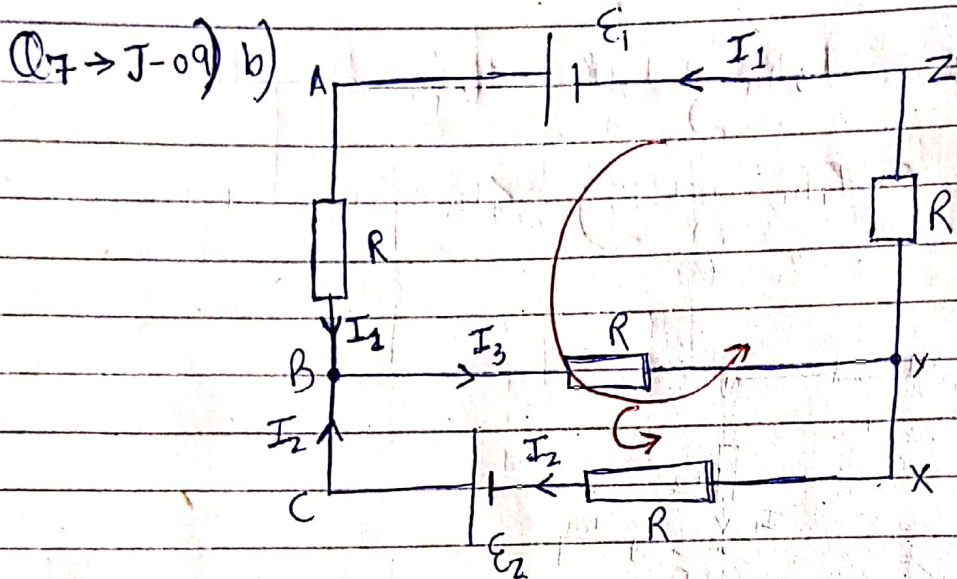 Q7 → J-09) b)
ε1
I1
A
Z
R
R
I1
I3
R
B
Y
I2
I2
C
X
R
ε2